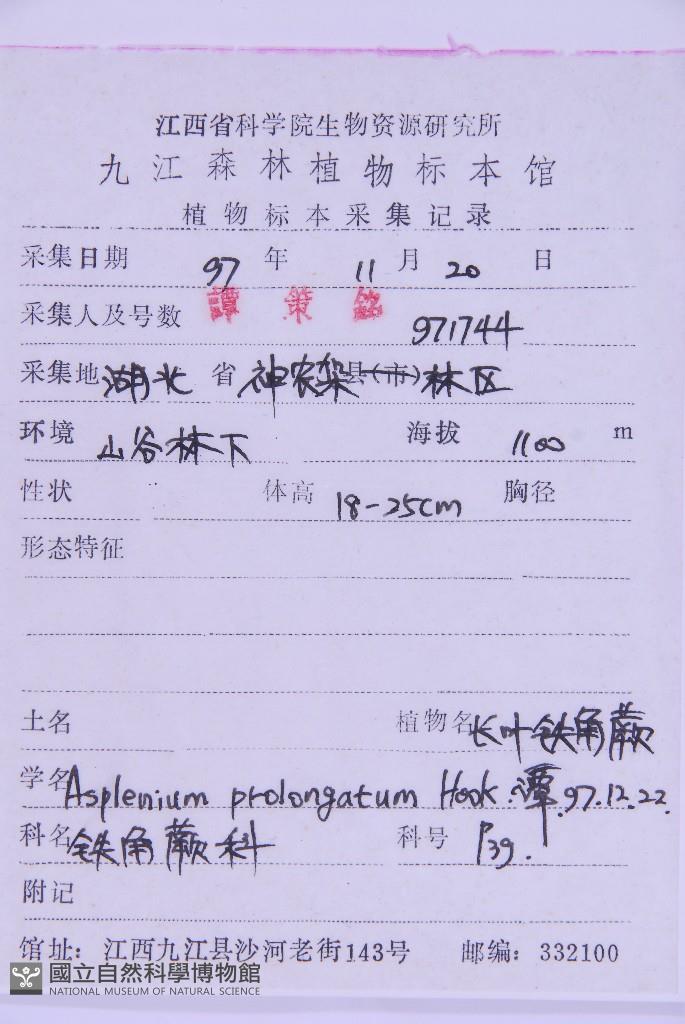 江西省科学院生物资源研究所
九江森林植物标本馆
植物标本采集记录
采集日期 97 年 11 月 20 日
采集人及号数 譚策銘 971744
采集地 湖北 省 神农架 县(市) 林区
环境 山谷林下 海拔 1100 m
性状 体高 18-25cm 胸径
形态特征
土名 植物名 长叶铁角蕨
学名 Asplenium prolongatum Hook. 谭.97.12.22.
科名 铁角蕨科 科号 P39.
附记
馆址：江西九江县沙河老街143号 邮编：332100
國立自然科學博物館
NATIONAL MUSEUM OF NATURAL SCIENCE